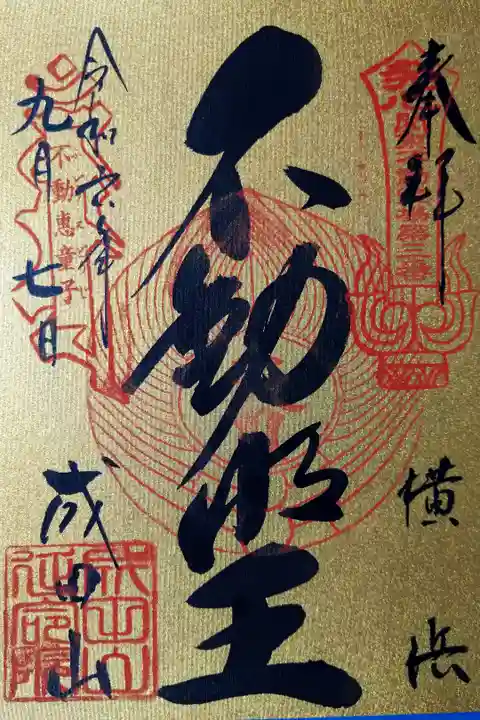 奉拝
横浜
不動明王
令和六年
九月七日
成田山
不動恵童子
成田山
延命院